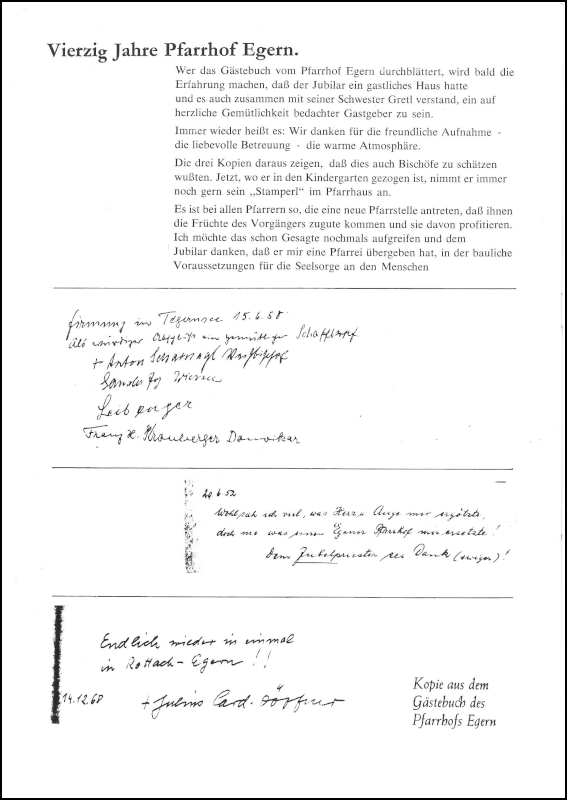 Vierzig Jahre Pfarrhof Egern.
Wer das Gästebuch vom Pfarrhof Egern durchblättert, wird bald die
Erfahrung machen, daß der Jubilar ein gastliches Haus hatte
und es auch zusammen mit seiner Schwester Gretl verstand, ein auf
herzliche Gemütlichkeit bedachter Gastgeber zu sein.
Immer wieder heißt es: Wir danken für die freundliche Aufnahme -
die liebevolle Betreuung - die warme Atmosphäre.
Die drei Kopien daraus zeigen, daß dies auch Bischöfe zu schätzen
wußten. Jetzt, wo er in den Kindergarten gezogen ist, nimmt er immer
noch gern sein „Stamperl" im Pfarrhaus an.
Es ist bei allen Pfarrern so, die eine neue Pfarrstelle antreten, daß ihnen
die Früchte des Vorgängers zugute kommen und sie davon profitieren.
Ich möchte das schon Gesagte nochmals aufgreifen und dem
Jubilar danken, daß er mir eine Pfarrei übergeben hat, in der bauliche
Voraussetzungen für die Seelsorge an den Menschen
Firmung in Tegernsee 15.6.58
Als würdiger
+ Anton Scharnagl Weihbischof
Wiessee
Leibenger
Franz X. Kronberger Domvikar
29.6.52
Wohl sah ich viel, was Herz u. Auge mir ergötzte,
doch nie was einen Egerner Pfarrhof mir ersetzte!
Dem Jubelpriester sei Dank (ewiger)!
Endlich wieder in einmal
in Rottach-Egern!!
14.12.68 + Julius Card. Döpfner
Kopie aus dem
Gästebuch des
Pfarrhofs Egern